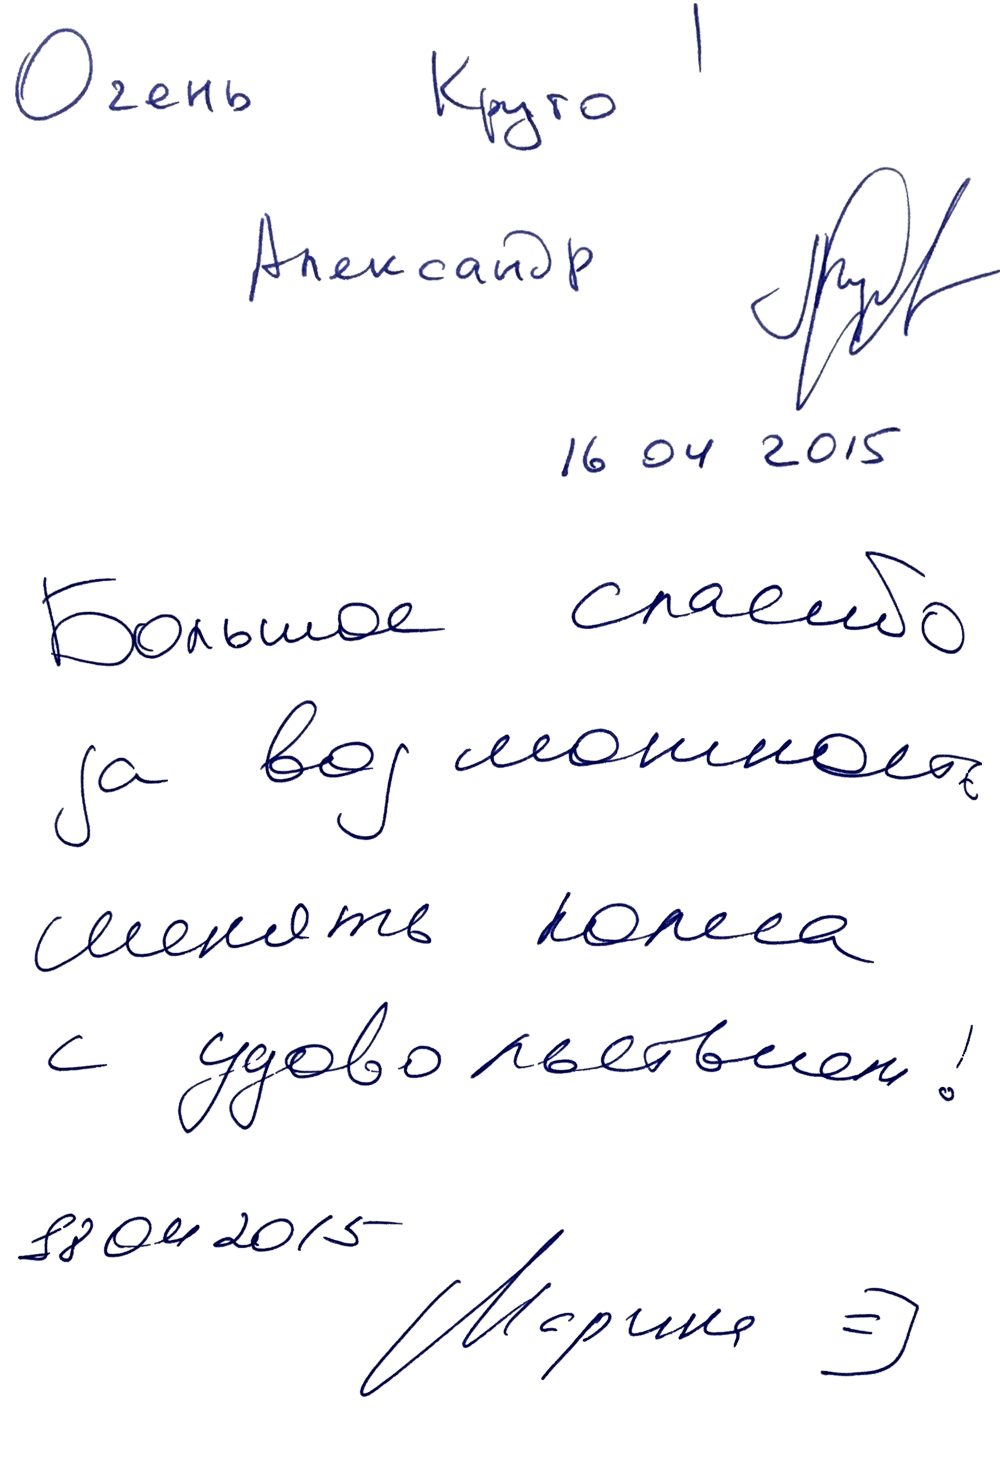 Очень Круто!
Александр
16 04 2015
Большое спасибо
за возможность
менять колеса
с удовольствием!
18 04 2015
Марина =)